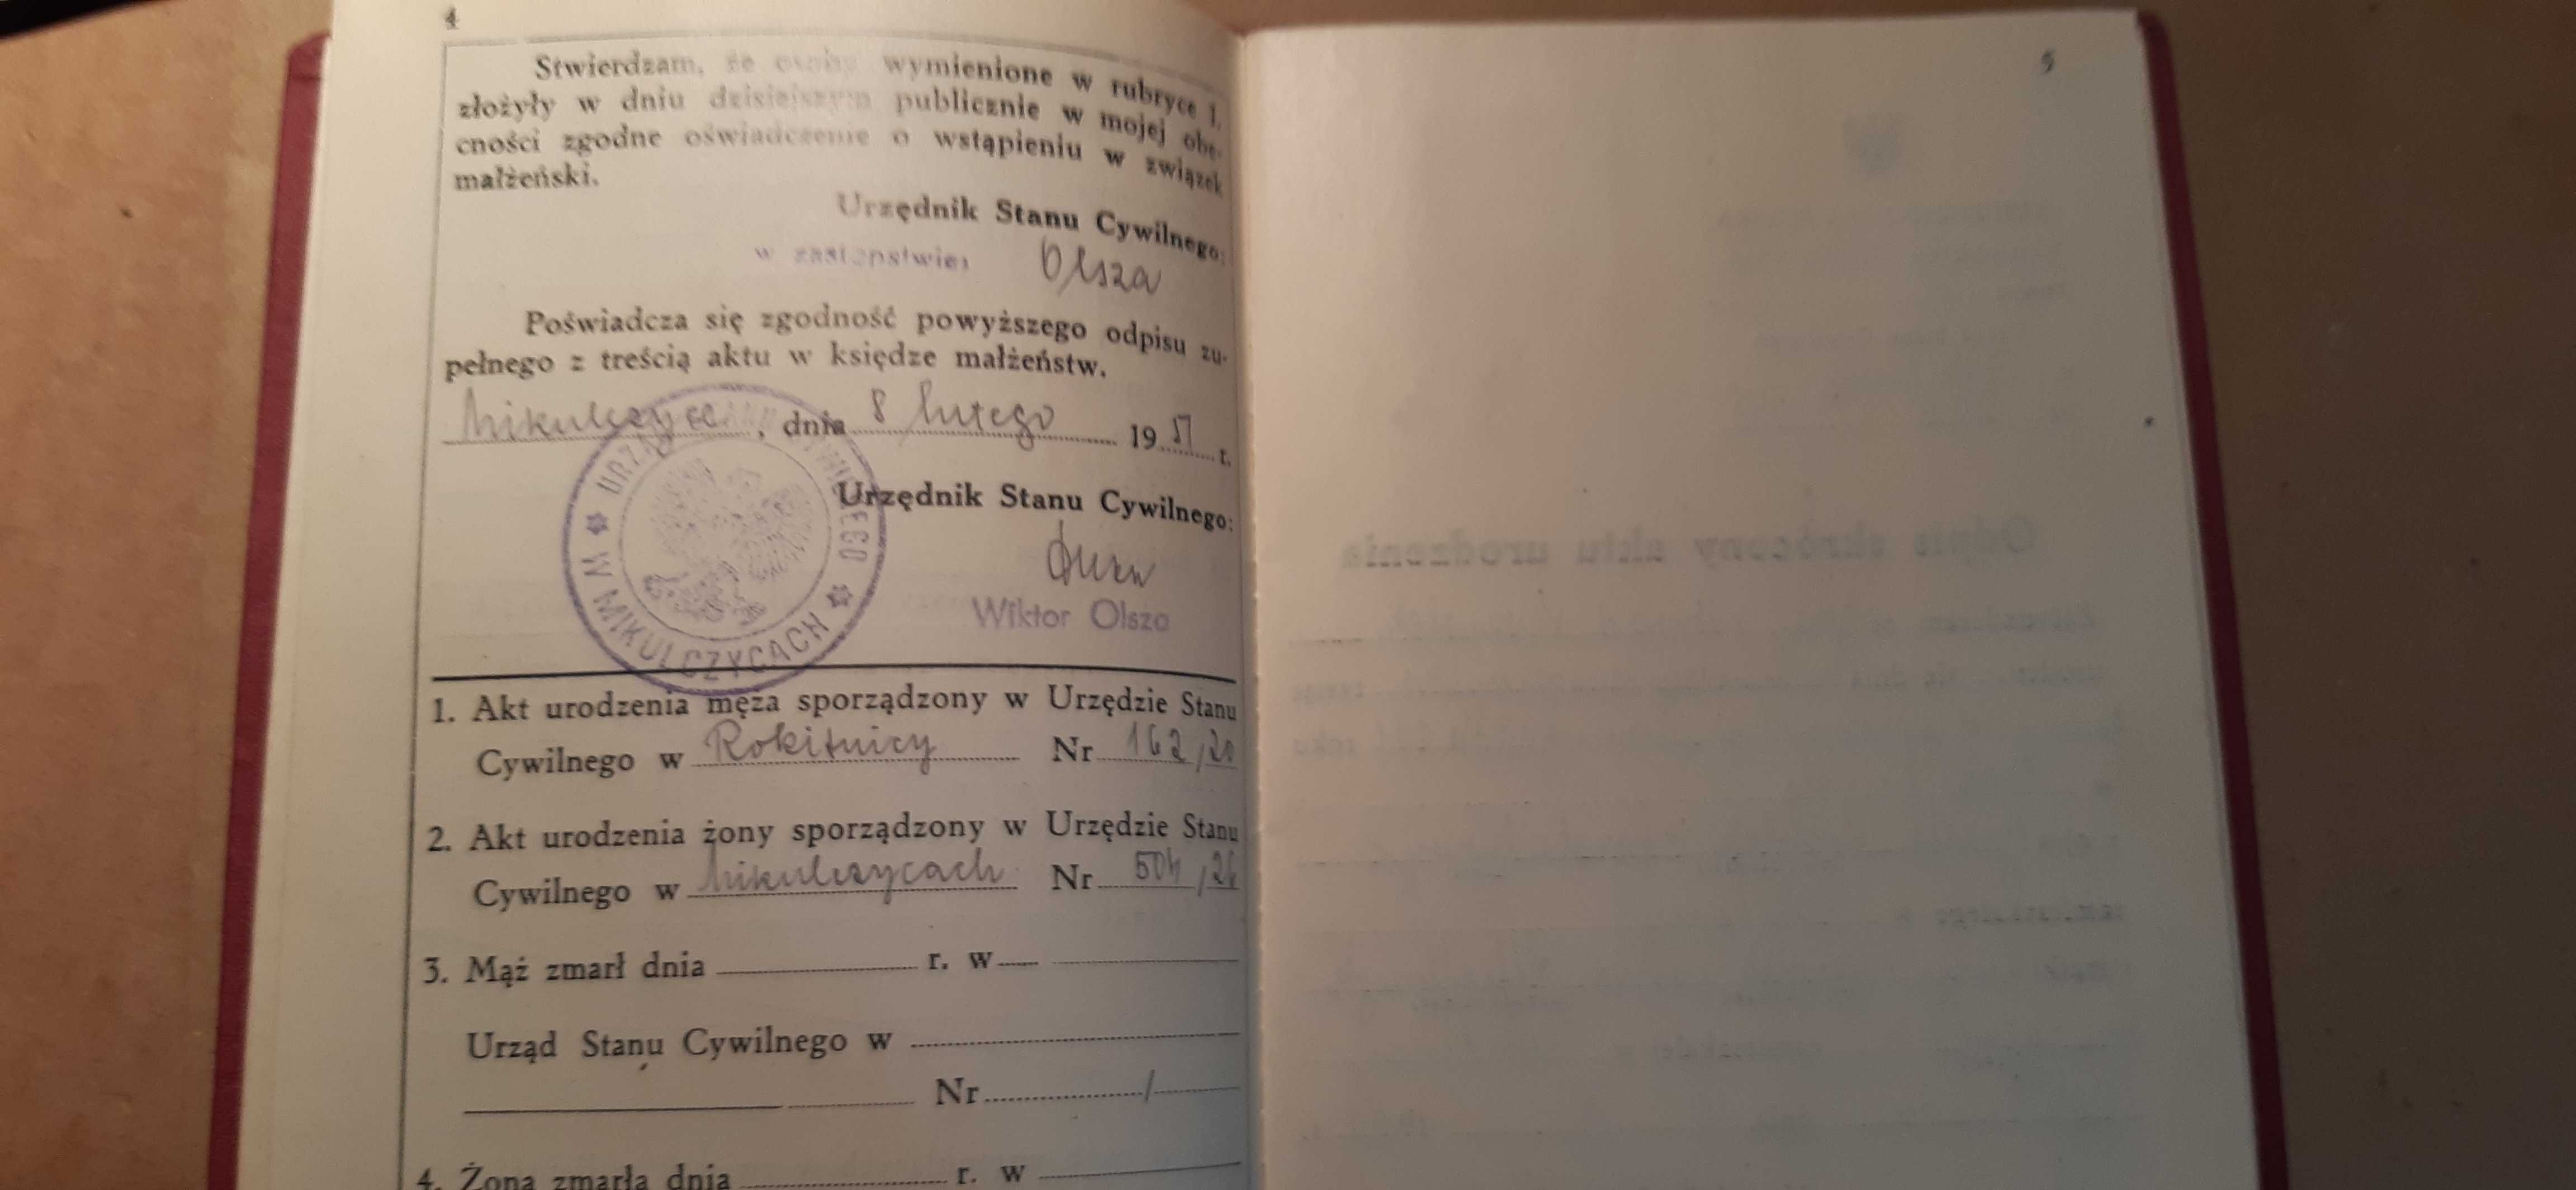 4
Stwierdzam, że osoby wymienione w rubryce I.
złożyły w dniu dzisiejszym publicznie w mojej obe-
cności zgodne oświadczenie o wstąpieniu w związek
małżeński.
Urzędnik Stanu Cywilnego:
w zastępstwie: Olsza
Poświadcza się zgodność powyższego odpisu zu-
pełnego z treścią aktu w księdze małżeństw.
Mikulczyce, dnia 8 lutego 1951 r.
URZĄD STANU CYWILNEGO W MIKULCZYCACH
Urzędnik Stanu Cywilnego:
Wiktor Olsza
1. Akt urodzenia męża sporządzony w Urzędzie Stanu
Cywilnego w Rokitnicy Nr 162/20
2. Akt urodzenia żony sporządzony w Urzędzie Stanu
Cywilnego w Mikulczycach Nr
3. Mąż zmarł dnia r. w
Urząd Stanu Cywilnego w
Nr /
4. Żona zmarła dnia r. w
5
Odpis skrócony aktu urodzenia